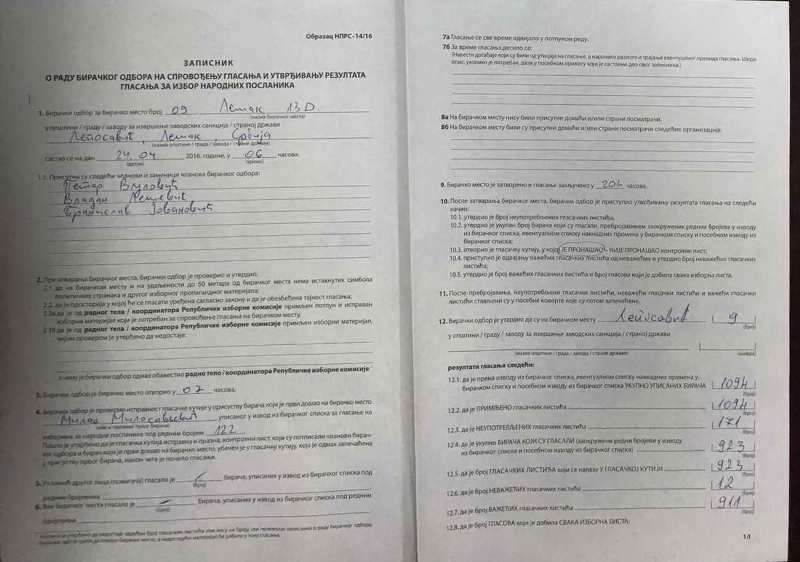 Образац НПРС-14/16
ЗАПИСНИК
О РАДУ БИРАЧКОГ ОДБОРА НА СПРОВОЂЕЊУ ГЛАСАЊА И УТВРЂИВАЊУ РЕЗУЛТАТА
ГЛАСАЊА ЗА ИЗБОР НАРОДНИХ ПОСЛАНИКА
1. Бирачки одбор за бирачко место број 09 Лешак 13D
(назив бирачког места)
у општини / граду / заводу за извршење заводских санкција / страној држави
Лепосавић, Лешак, Србија
(назив општине / града / завода / стране државе)
састао се на дан 24.04 2016. године, у 06 часова.
(датум) (време)
1.1. Присутни су следећи чланови и заменици чланова бирачког одбора:
Петар Вуловић
Владан
Бранислав Јовановић
2. При отварања бирачког места, бирачки одбор је проверио и утврдио:
2.1 да на бирачком месту и на удаљености до 50 метара од бирачког места нема истакнутих симбола
политичких странака и другог изборног пропагандног материјала;
2.2. да је просторија у којој ће се гласати уређена сагласно закону и да је обезбеђена тајност гласања;
2.3а да је од радног тела / координатора Републичке изборне комисије примљен потпун и исправан
изборни материјал који је потребан за спровођење гласања на бирачком месту.
2.3б да је од радног тела / координатора Републичке изборне комисије примљен изборни материјал,
чијом провером је утврђено да недостаје:
о чему је бирачки одбор одмах обавестио радно тело / координатора Републичке изборне комисије
3. Бирачки одбор је бирачко место отворио у 07 часова.
4. Бирачки одбор је проверио исправност гласачке кутије у присуству бирача који је први дошао на бирачко место
Милан Милосављевић уписаног у извод из бирачког списка за гласање на
(име и презиме првог бирача)
изборима за народне посланике под редним бројем 122.
Пошто је утврђено да је гласачка кутија исправна и празна, контролни лист, који су потписали чланови бирачког
одбора и бирач који је први дошао на бирачко место, убачен је у гласачку кутију, која је одмах запечаћена
у присуству првог бирача, након чега је почело гласање.
5. Уз помоћ другог лица (помагача) гласало је / бирача, уписаних у извод из бирачког списка под
(број)
редним бројевима
6. Ван бирачког места гласало је / бирача, уписаних у извод из бирачког списка под редним
(број)
бројевима
7а Гласање се све време одвијало у потпуном реду.
7б За време гласања десило се:
8а На бирачком месту нису били присутни домаћи и/или страни посматрачи.
8б На бирачком месту били су присутни домаћи и/или страни посматрачи следећих организација:
9. Бирачко место је затворено и гласање закључено у 20h часова.
10. После затварања бирачког места, бирачки одбор је приступио утврђивању резултата гласања на следећи
начин:
10.1. утврдио је број неупотребљених гласачких листића,
10.2. утврдио је укупан број бирача који су гласали, пребројавањем заокружених редних бројева у изводу
из бирачког списка, евентуалном списку накнадних промена у бирачком списку и посебном изводу из
бирачког списка;
10.3. отворио је гласачку кутију, у којој ЈЕ ПРОНАШАО / НИЈЕ ПРОНАШАО контролни лист;
10.4. приступио је одвајању важећих гласачких листића од неважећих и утврдио број неважећих гласачких
листића;
10.5. утврдио је број важећих гласачких листића и број гласова који је добила свака изборна листа.
11. После пребројавања, неупотребљени гласачки листићи, неважећи гласачки листићи и важећи гласачки
листићи стављени су у посебне коверте које су потом запечаћене.
12. Бирачки одбор је утврдио да су на бирачком месту Лепосавић 9
у општини / граду / заводу за извршење заводских санкција / страној држави
(назив општине / града / завода / стране државе)
резултати гласања следећи:
12.1. да је према изводу из бирачког списка, евентуалном списку накнадних промена у
бирачком списку и посебном изводу из бирачког списка УКУПНО УПИСАНИХ БИРАЧА 1094
(број)
12.2. да је ПРИМЉЕНО гласачких листића 1094
(број)
12.3. да је НЕУПОТРЕБЉЕНИХ гласачких листића 171
(број)
12.4. да је укупно БИРАЧА КОЈИ СУ ГЛАСАЛИ (заокружени редни бројеви у изводу
из бирачког списка и посебном изводу из бирачког списка) 923
(број)
12.5. да је број ГЛАСАЧКИХ ЛИСТИЋА који се налазе У ГЛАСАЧКОЈ КУТИЈИ 923
(број)
12.6. да је број НЕВАЖЕЋИХ гласачких листића 12
(број)
12.7. да је број ВАЖЕЋИХ гласачких листића 911
(број)
12.8. да је број ГЛАСОВА које је добила СВАКА ИЗБОРНА ЛИСТА:
1/I